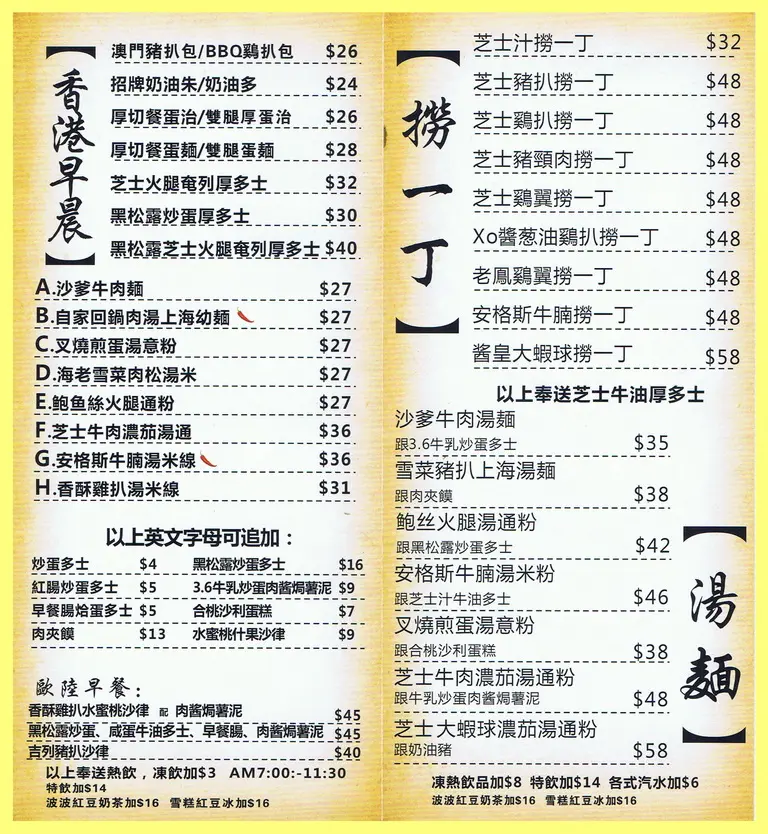 【香港早晨】
澳門豬扒包/BBQ鷄扒包 $26
招牌奶油朱/奶油多 $24
厚切餐蛋治/雙腿厚蛋治 $26
厚切餐蛋麵/雙腿蛋麵 $28
芝士火腿奄列厚多士 $32
黑松露炒蛋厚多士 $30
黑松露芝士火腿奄列厚多士 $40
A.沙爹牛肉麵 $27
B.自家回鍋肉湯上海幼麵 $27
C.叉燒煎蛋湯意粉 $27
D.海老雪菜肉松湯米 $27
E.鮑鱼絲火腿通粉 $27
F.芝士牛肉濃茄湯通 $36
G.安格斯牛腩湯米線 $36
H.香酥雞扒湯米線 $31
以上英文字母可追加：
炒蛋多士 $4 黑松露炒蛋多士 $16
紅腸炒蛋多士 $5 3.6牛乳炒蛋肉酱焗薯泥 $9
早餐腸烚蛋多士 $5 合桃沙利蛋糕 $7
肉夾饃 $13 水蜜桃什果沙律 $9
歐陸早餐：
香酥雞扒水蜜桃沙律 配 肉酱焗薯泥 $45
黑松露炒蛋、咸蛋牛油多士、早餐腸、肉酱焗薯泥 $45
吉列豬扒沙律 $40
以上奉送熱飲，凍飲加$3 AM7:00:-11:30
特飲加$14
波波紅豆奶茶加$16 雪糕紅豆冰加$16
【撈一丁】
芝士汁撈一丁 $32
芝士豬扒撈一丁 $48
芝士鷄扒撈一丁 $48
芝士豬頸肉撈一丁 $48
芝士鷄翼撈一丁 $48
Xo醬葱油鷄扒撈一丁 $48
老鳳鷄翼撈一丁 $48
安格斯牛腩撈一丁 $48
酱皇大蝦球撈一丁 $58
以上奉送芝士牛油厚多士
【湯麵】
沙爹牛肉湯麵
跟3.6牛乳炒蛋多士 $35
雪菜豬扒上海湯麵
跟肉夾饃 $38
鲍丝火腿湯通粉
跟黑松露炒蛋多士 $42
安格斯牛腩湯米粉
跟芝士汁牛油多士 $46
叉燒煎蛋湯意粉
跟合桃沙利蛋糕 $38
芝士牛肉濃茄湯通粉
跟牛乳炒蛋肉酱焗薯泥 $48
芝士大蝦球濃茄湯通粉
跟奶油豬 $58
凍熱飲品加$8 特飲加$14 各式汽水加$6
波波紅豆奶茶加$16 雪糕紅豆冰加$16